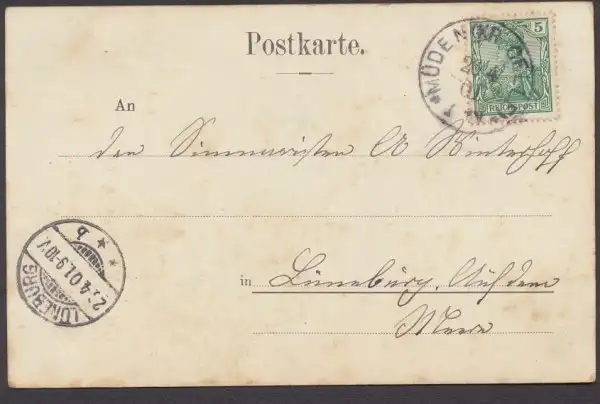 Postkarte.
MÜDEN (KR.
5
REICHSPOST
An
den A Winterhoff
in Lüneburg. Auf dem
Meere
LÜNEBURG
22.4.01.9-10.V.
* * b